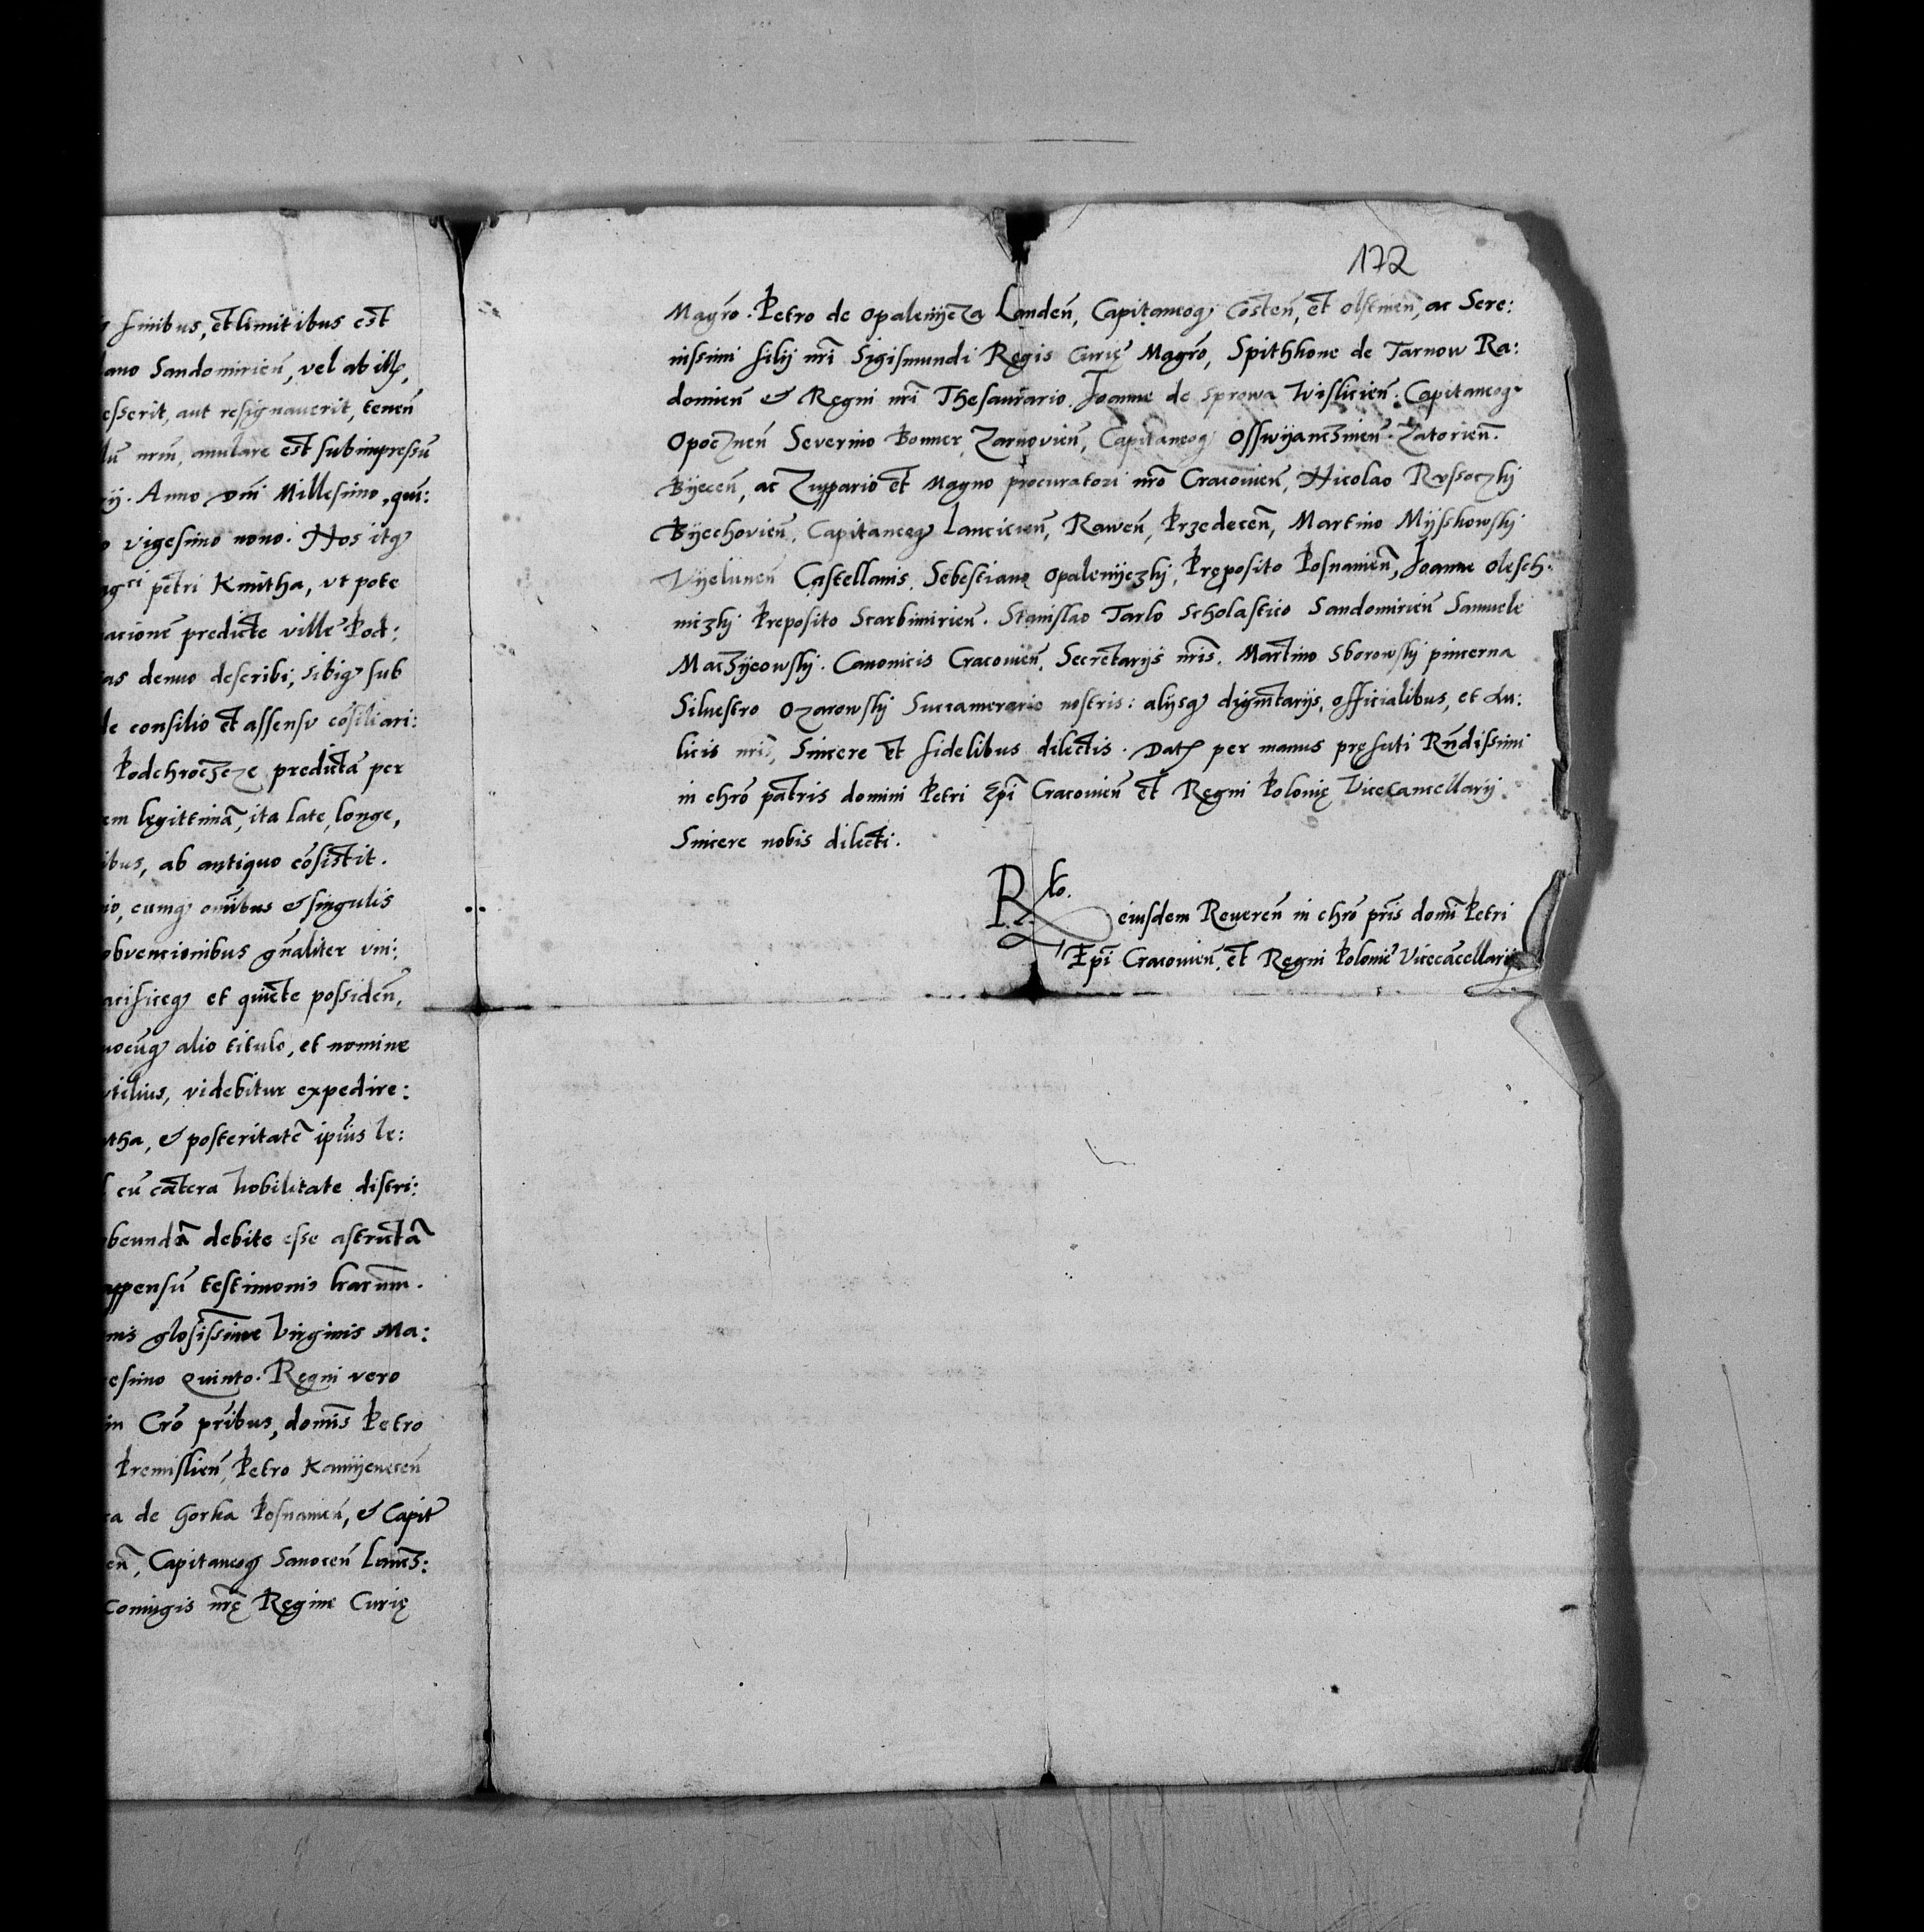 finibus, et limitibus est
ano Sandomirień, vel ab illo,
esserit, aut resignauerit, teneń
nrm, anulare est subimpressū
Anno dni Millesimo, quin:
vigesimo nono. Nos itq
petri Kmitha, vt pote
acionē predicte ville Pod:
as denuo describi, sibiq sub
de consilio et assensu cōsiliari:
Podchrocze predictā per
em legittimā, ita late, longe,
ibus, ab antiquo cōsistit.
io, cumq omībus & singulis
obvencionibus gnaliter vni:
acificeq et quiete possideń,
uocūq alio titulo, et nomine
vtilius, videbitur expedire:
tha, & posteritatē ipīus le:
cū cātera Nobilitate distri:
obeundā debite esse astrictā
appensū testimonio harum.
nis glosissime Virginis Ma:
esimo Quinto. Regni vero
in Crō pribus, domīs Petro
Premislień, Petro Kamÿeneceń
ca de Gorka Posnanień, & Capit
eń, Capitaneoq Sanoceń
Coniugis nrę Regine Curię
172
Magrō. Petro de Opalenÿcza Landeń, Capitaneoq Costeń, et Olstineń, ac Sere:
nissimi filÿ nrī Sigismundi Regis Curię Magrō, Spithkone de Tarnow Ra:
domień & Regni nrī Thesaurario. Joanne de Sprowa Wislicień. Capitaneoq
Opoczneń Severino Bonner, Zarnovień, Capitaneoq Osswÿanczimeń. Zatorień.
Bÿeceń, ac Zuppario et Magno procuratori nrō Cracouień, Nicolao Russoczki
Bÿechovień, Capitaneoq Lancicień, Raweń, Przedeceń, Martino Mÿskowskj
Vÿeluneń Castellanis. Sebestiano Opalenÿczkj, Pręposito Posnanień, Joanne Olesch:
niczkj Preposito Scarbimirień. Stanislao Tarlo Scholastico Sandomirień Samuele
Maczÿeowskj. Canonicis Cracouień. Secretarÿs nrīs. Martino Sborowskj pincerna
Siluestro Ozarowskj Succamerario nostris: alÿsq dignitarÿs, officialibus, et Au:
licis nrīs, Sincere et fidelibus dilectis. Dat per manus pręfati Rndissimi
in chrō patris domini Petri Epī Cracouień et Regni Polonię Vicecancellarij.
Sincere nobis dilecti.
Rlo.
eiusdem Revereń in chrō pris domī Petri
Epī Cracouień. et Regni Polonię Vicecācellarij